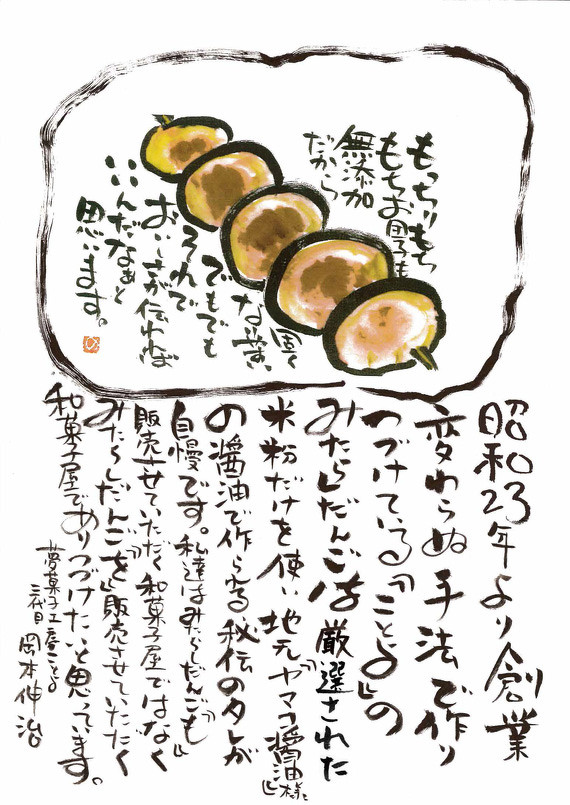 もっちりもち
もちお団子も
無添加
だから
固く
な業。
でもでも
それで
おいしさが伝われば
いいんだなぁと
思います。
昭和23年より創業
変わらぬ手法で作り
つづけている「ことよ」の
みたらしだんごは厳選された
米粉だけを使い地元「ヤマコ醤油様」
の醤油で作られる秘伝のタレが
自慢です。私達はみたらしだんご「も」
販売させていただく和菓子屋ではなく
みたらしだんご「を」販売させていただく
和菓子屋でありつづけたいと思っています。
夢菓子工房ことよ
三代目 岡本伸治